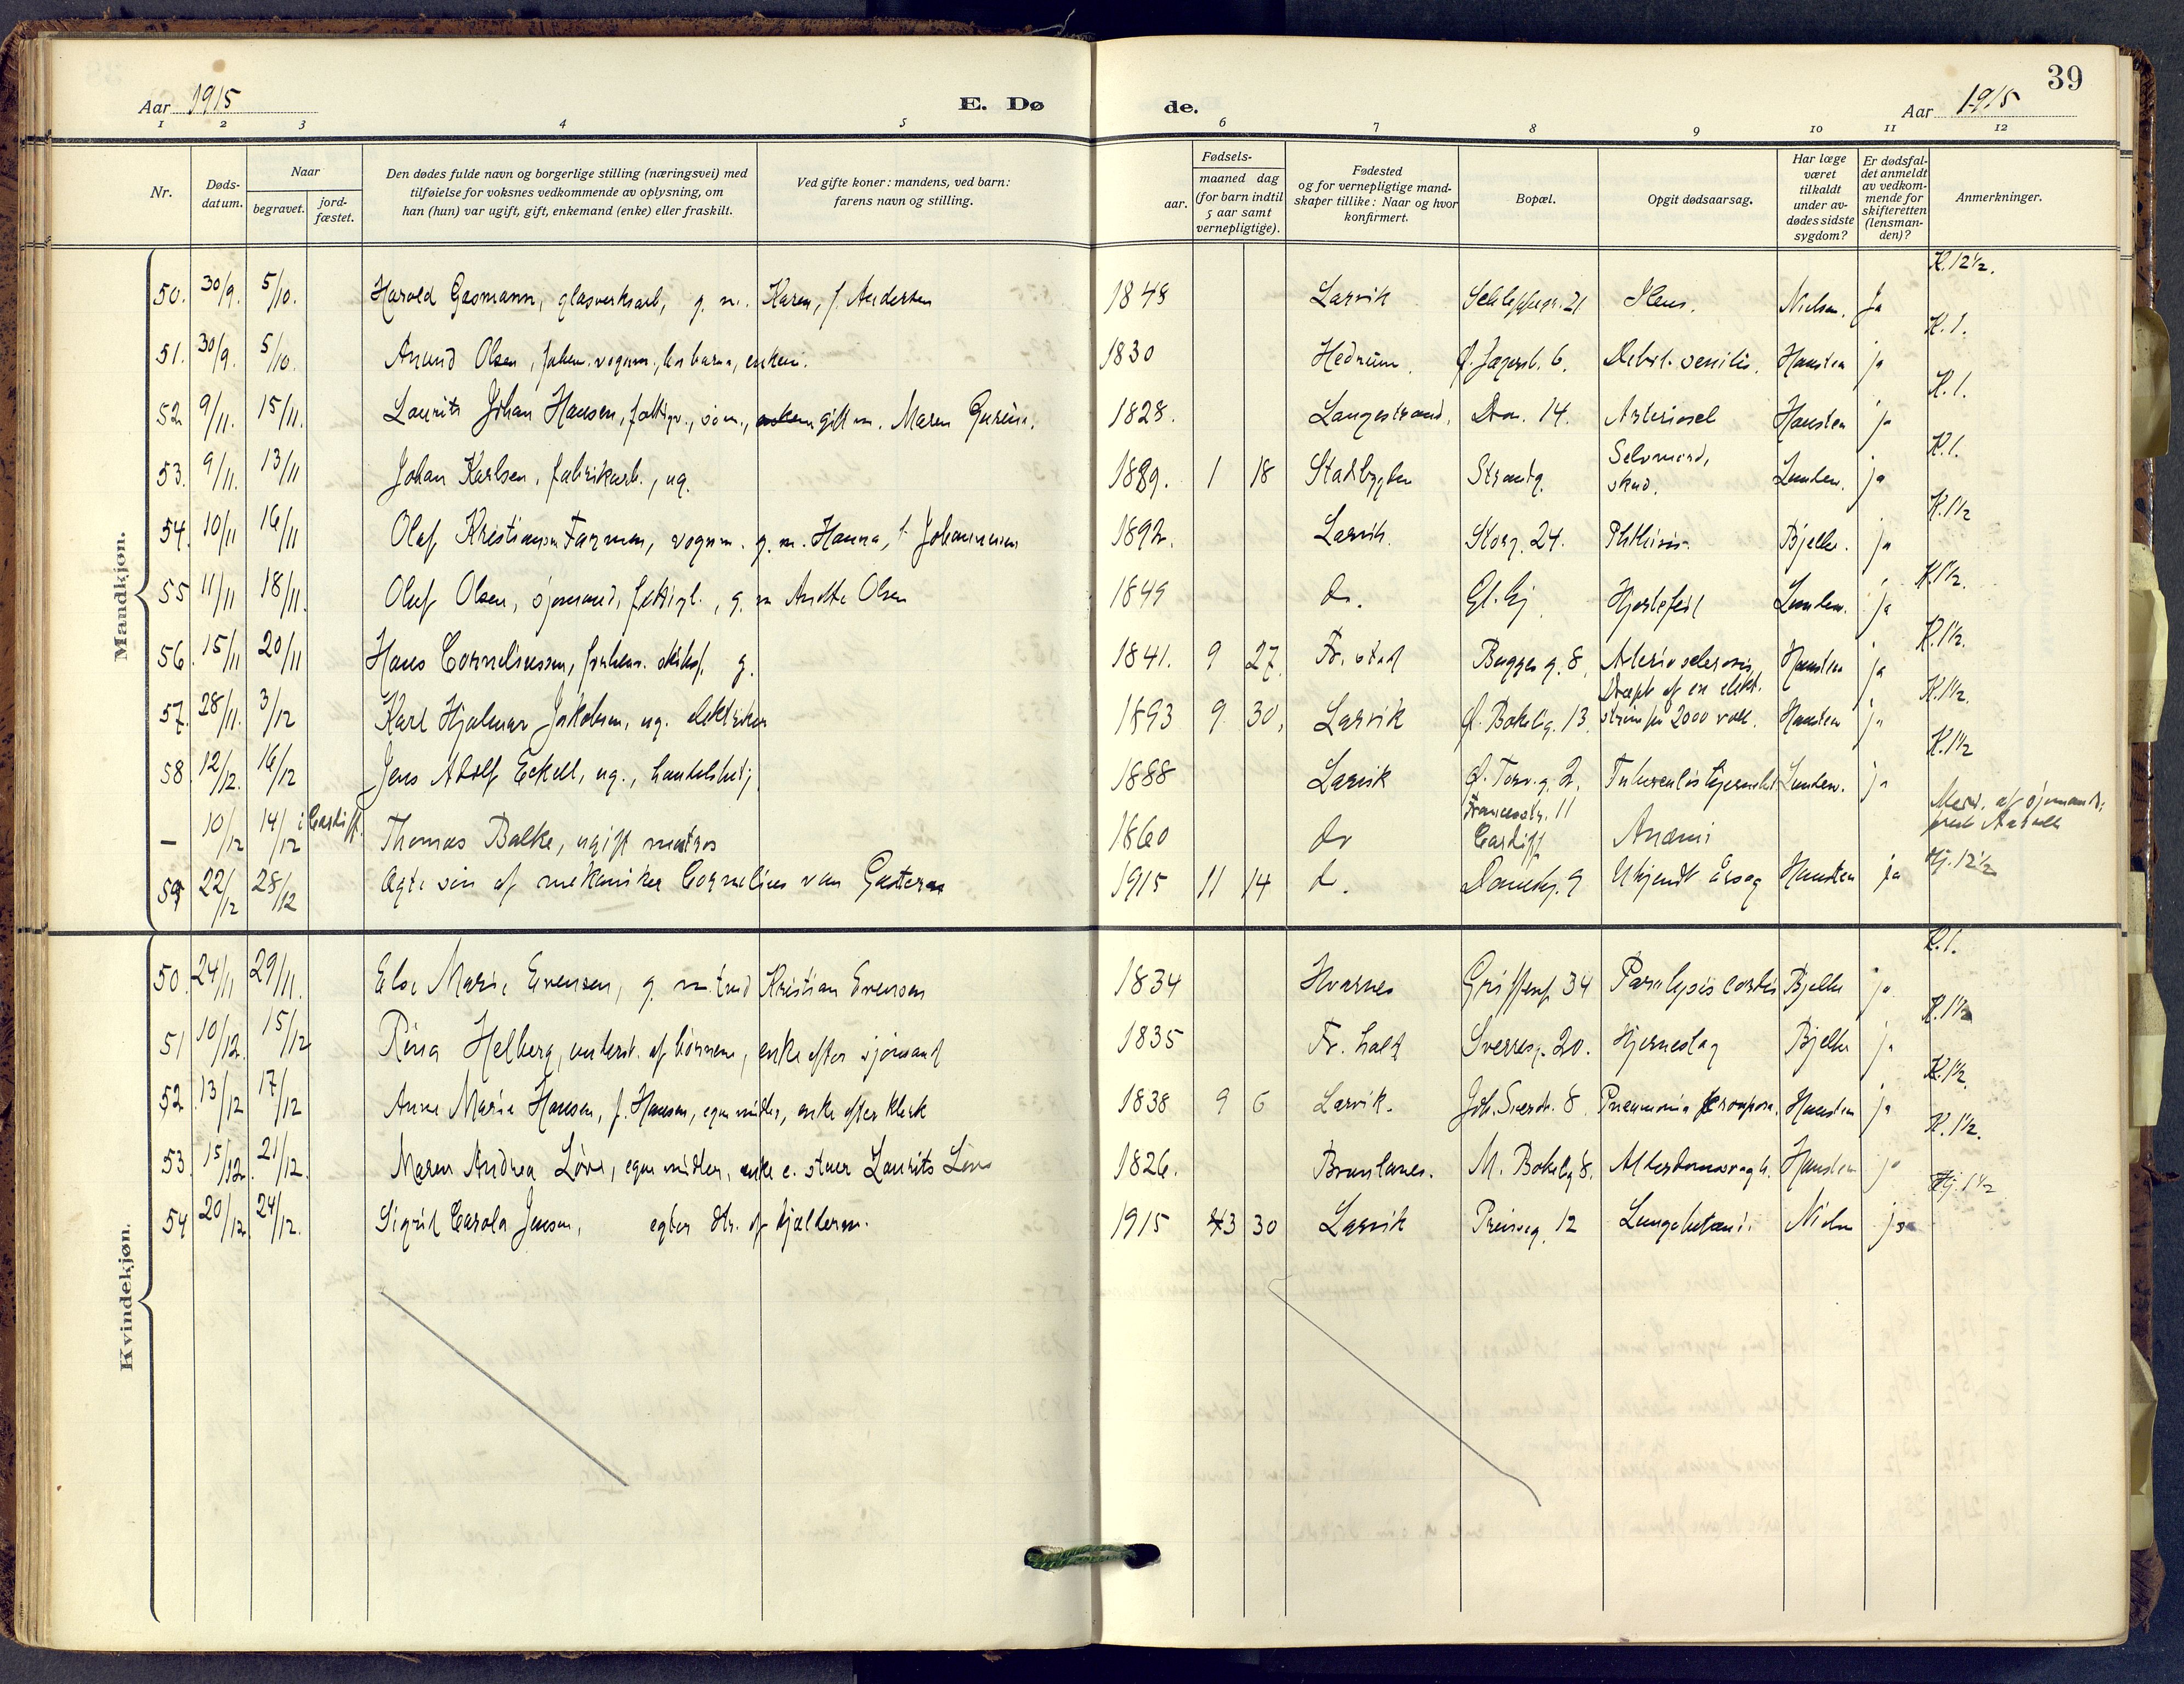 39
Aar 1915 E. Dø de. Aar 1915
1 2 3 4 5 6 7 8 9 10 11 12
Nr. Døds-datum. Naar begravet. jord-fæstet. Den dødes fulde navn og borgerlige stilling (næringsvei) med tilføielse for voksnes vedkommende av oplysning, om han (hun) var ugift, gift, enkemand (enke) eller fraskilt. Ved gifte koner: mandens, ved barn: farens navn og stilling. Fødsels- aar. maaned dag (for barn indtil 5 aar samt vernepligtige). Fødested og for vernepligtige mandskaper tillike: Naar og hvor konfirmert. Bopæl. Opgit dødsaarsag. Har læge været tilkaldt under avdødes sidste sygdom? Er dødsfaldet anmeldt av vedkommende for skifteretten (lensmanden)? Anmerkninger.
Mandkjøn.
50. 30/9. 5/10. Harald Gasmann, glasverksarb, g. m. Karen, f. Andersen 1848 Larvik Schleppegr. 21 Ileus. Nielsen. Ja K. 12 1/2.
51. 30/9. 5/10. Anund Olsen, vognm., hos barna, enkem. 1830 Hedrum. 6. Debil. senilis. Hansten ja K. 1.
52 9/11. 15/11. Laurits Johan Hansen, fattigv., søm., gift m. Maren 1828. Langestrand. Do. 14. Hansten ja K. 1.
53. 9/11. 13/11 Johan Karlsen, fabrikarb., ug. 1889. 1 18 Stadsbygden Strandg. Selvmord, skud. Lunden. ja K. 1.
54. 10/11 16/11 Olaf Kristiansen Farmen, vognm. g. m. Hanna, f. Johannessen 1892. Larvik. Storg. 24. Phthisis. Bjelke. ja K. 1 1/2
55 11/11 18/11. Oluf Olsen, sjømand, fattigl., g. m Olsen 1849 do. Gl. Hjertefeil Lunden. ja K. 1 1/2.
56. 15/11 20/11 Hans Corneliussen, forhenv. g. 1841. 9 27. Fr. stad Bugges g. 8. Arteriosclerosis Hansten ja K. 1 1/2.
57. 28/11. 3/12 Karl Hjalmar Jakobsen, ug. elektriker 1893 9. 30. Larvik Ø. Bokelig. 13. Dræpt af en elekt. strøm på 2000 volt. Hansten ja K. 1 1/2.
58 12/12. 16/12 Jens Adolf Eckell, ug., handelsbetj. 1888 Larvik Ø. Torv. g. 2. Lunden. ja K. 1 1/2
— 10/12 14/12 i Cardiff. Thomas Balke, ugift matros 1860 do 11 Cardiff Anæmi Med. af sjømands
59 22/12 28/12 Ægte søn af mekaniker Cornelius van 1915 11 14 do. 9 Ukjendt årsag Hansten ja Hj. 12 1/2
Kvindekjøn.
50. 24/11 29/11. Else Marie Evensen, g. m. Kristian Evensen 1834 Hvarnes Griffenf. 34 Paralysis cordis Bjelke ja K. 1.
51 10/12. 15/12 Rina Helberg, underst. af børnene, enke efter sjømand 1835 Fr. hald Sverresg. 20. Hjerneslag Bjelke ja K. 1 1/2
52 13/12 17/12 Anne Marie Hansen, f. Hansen, egne midler, enke efter klerk 1838 9 6 Larvik. Joh. Sverdr. 8. Pneumonia Hansten ja K. 1 1/2.
53. 15/12. 21/12. Maren Andrea Løve, egne midler, enke e. stuer Laurits Løve 1826. Brunlanes. M. Bokelig. 8. Hansten ja K. 1 1/2.
54 20/12 24/12. Sigrid Carola Jensen, egtef. dtr. af 1915 3 30 Larvik 12 Nielsen ja Hj. 1 1/2